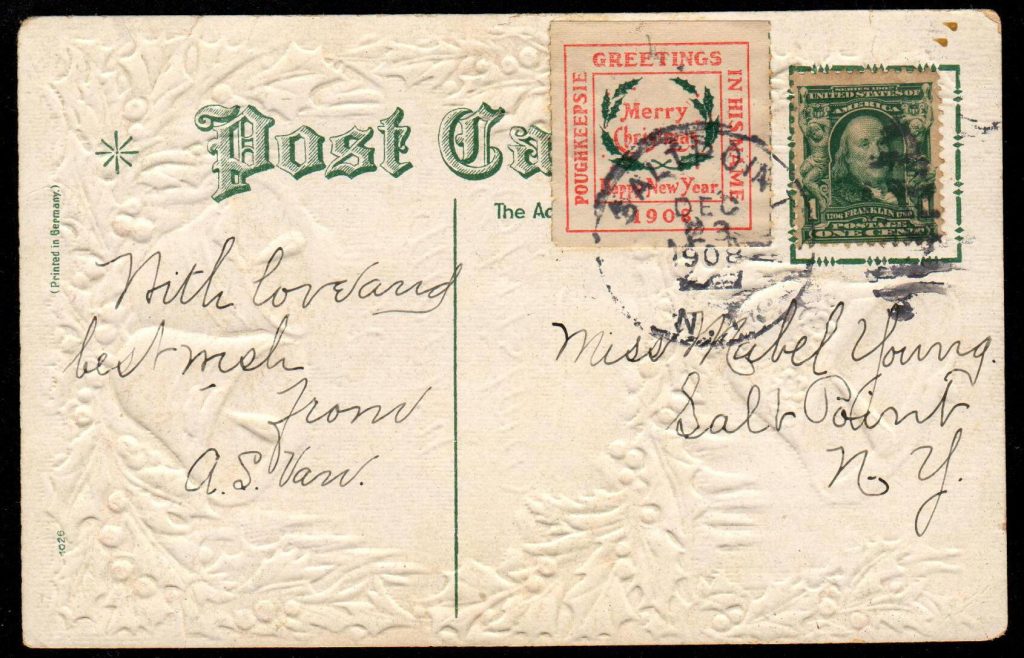 Post Ca
The Ad
(Printed in Germany.)
1026
GREETINGS
POUGHKEEPSIE
IN HIS NAME
Merry
Christmas
Happy New Year.
1908
SALT POINT
DEC
23
1908
N.Y.
SERIES 1902
UNITED STATES OF
AMERICA
1
1706 FRANKLIN 1790
POSTAGE
ONE CENT
With love and
best wish
from
A. S. Van.
Miss Mabel Young.
Salt Point
N. Y.